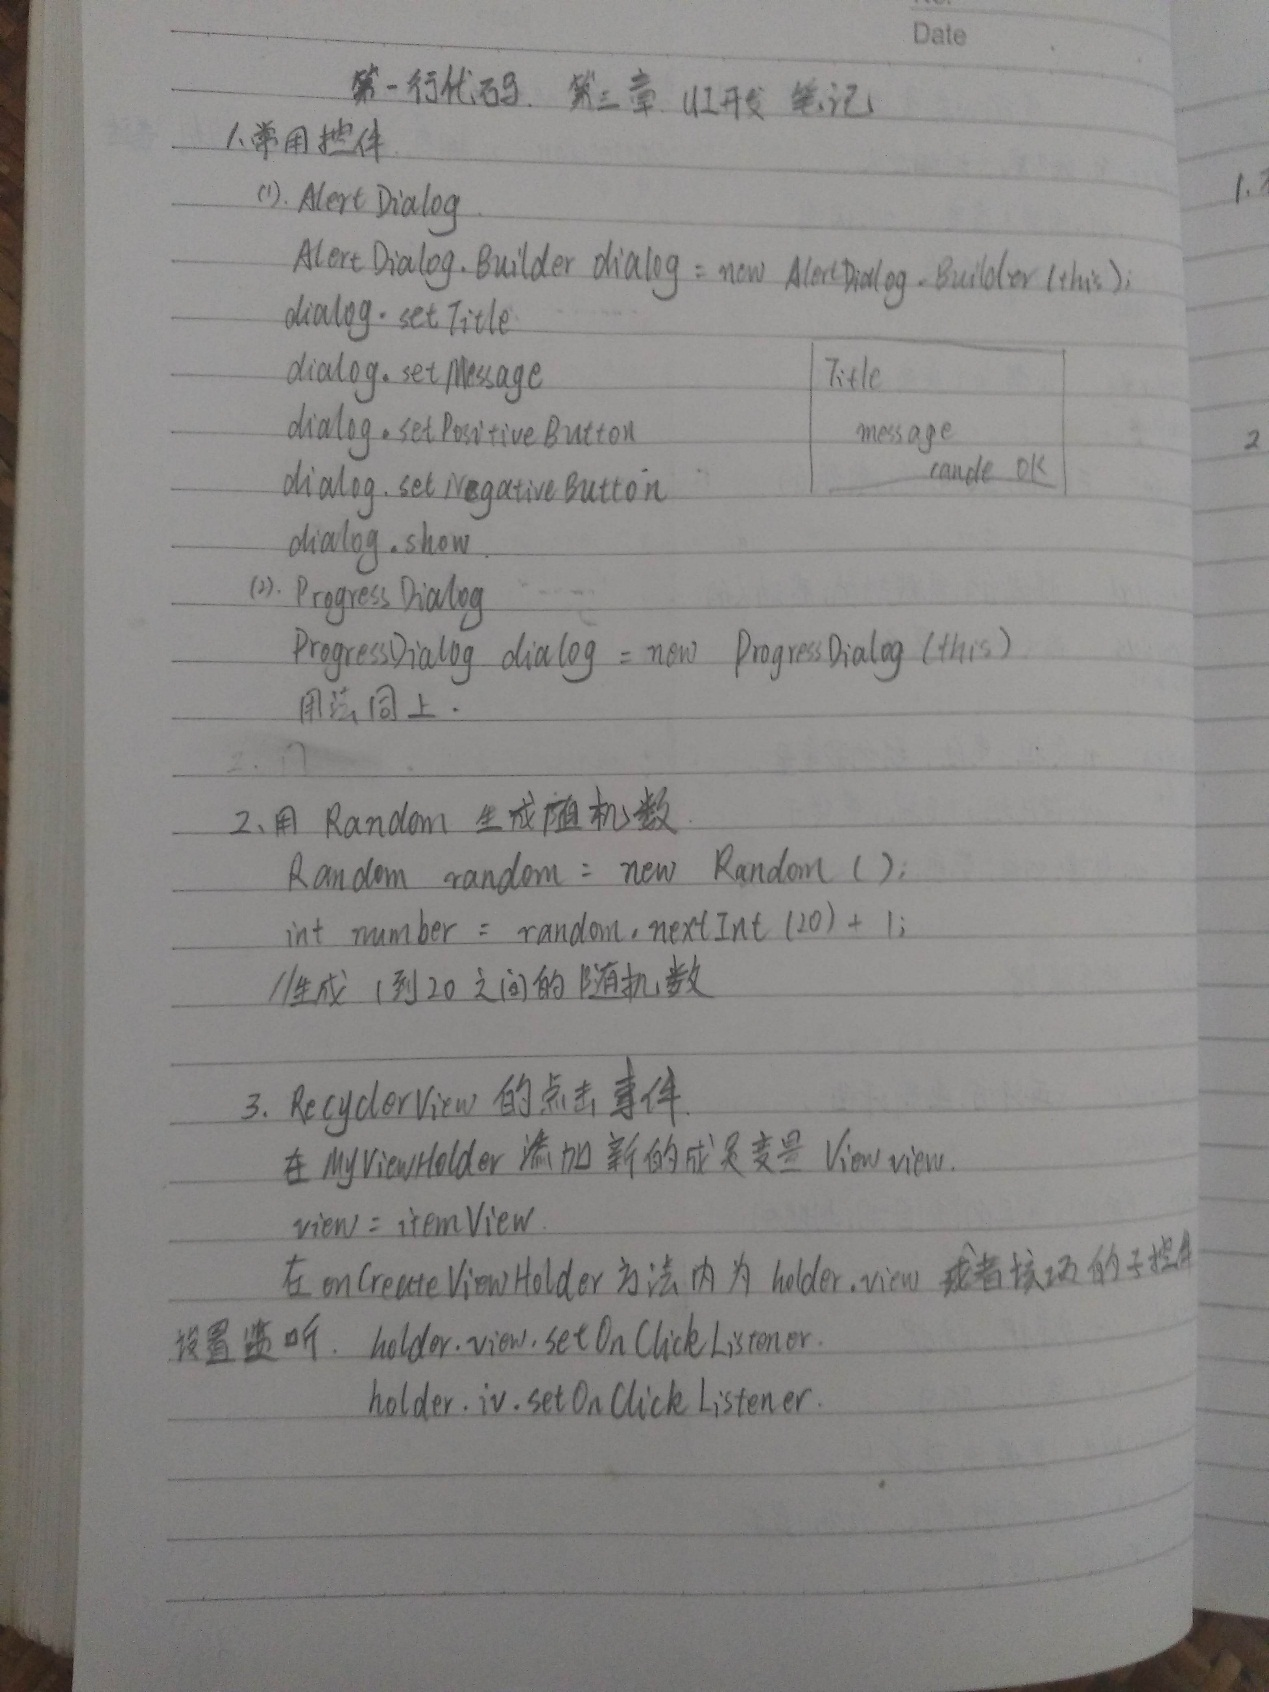 Date
第一行代码 第三章 UI开发 笔记
1、常用控件
(1). AlertDialog
AlertDialog.Builder dialog = new AlertDialog.Builder(this);
dialog.setTitle
dialog.setMessage
dialog.setPositiveButton
dialog.setNegativeButton
dialog.show
Title
message
cancle OK
(2). ProgressDialog
ProgressDialog dialog = new ProgressDialog(this)
用法同上.
2、用 Random 生成随机数
Random random = new Random();
int number = random.nextInt(20) + 1;
//生成 1到20之间的随机数
3. RecyclerView 的点击事件
在 MyViewHolder 添加新的成员变量 View view.
view = itemView
在onCreateViewHolder 方法内为 holder.view 或者该项的子控件
设置监听. holder.view.setOnClickListener.
holder.iv.setOnClickListener.
1.
2